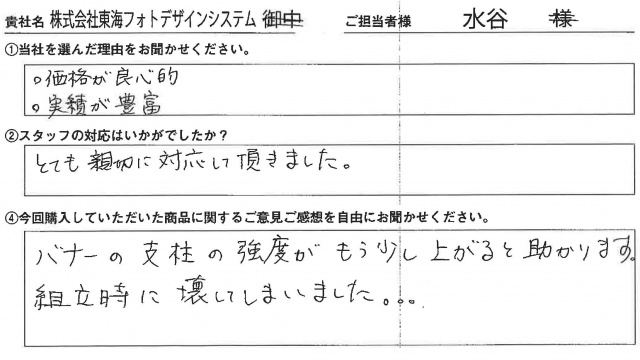 貴社名 株式会社東海フォトデザインシステム 御中 ご担当者様 水谷 様
①当社を選んだ理由をお聞かせください。
。価格が良心的
。実績が豊富
②スタッフの対応はいかがでしたか？
とても親切に対応して頂きました。
④今回購入していただいた商品に関するご意見ご感想を自由にお聞かせください。
バナーの支柱の強度がもう少し上がると助かります。
組立時に壊してしまいました。。。